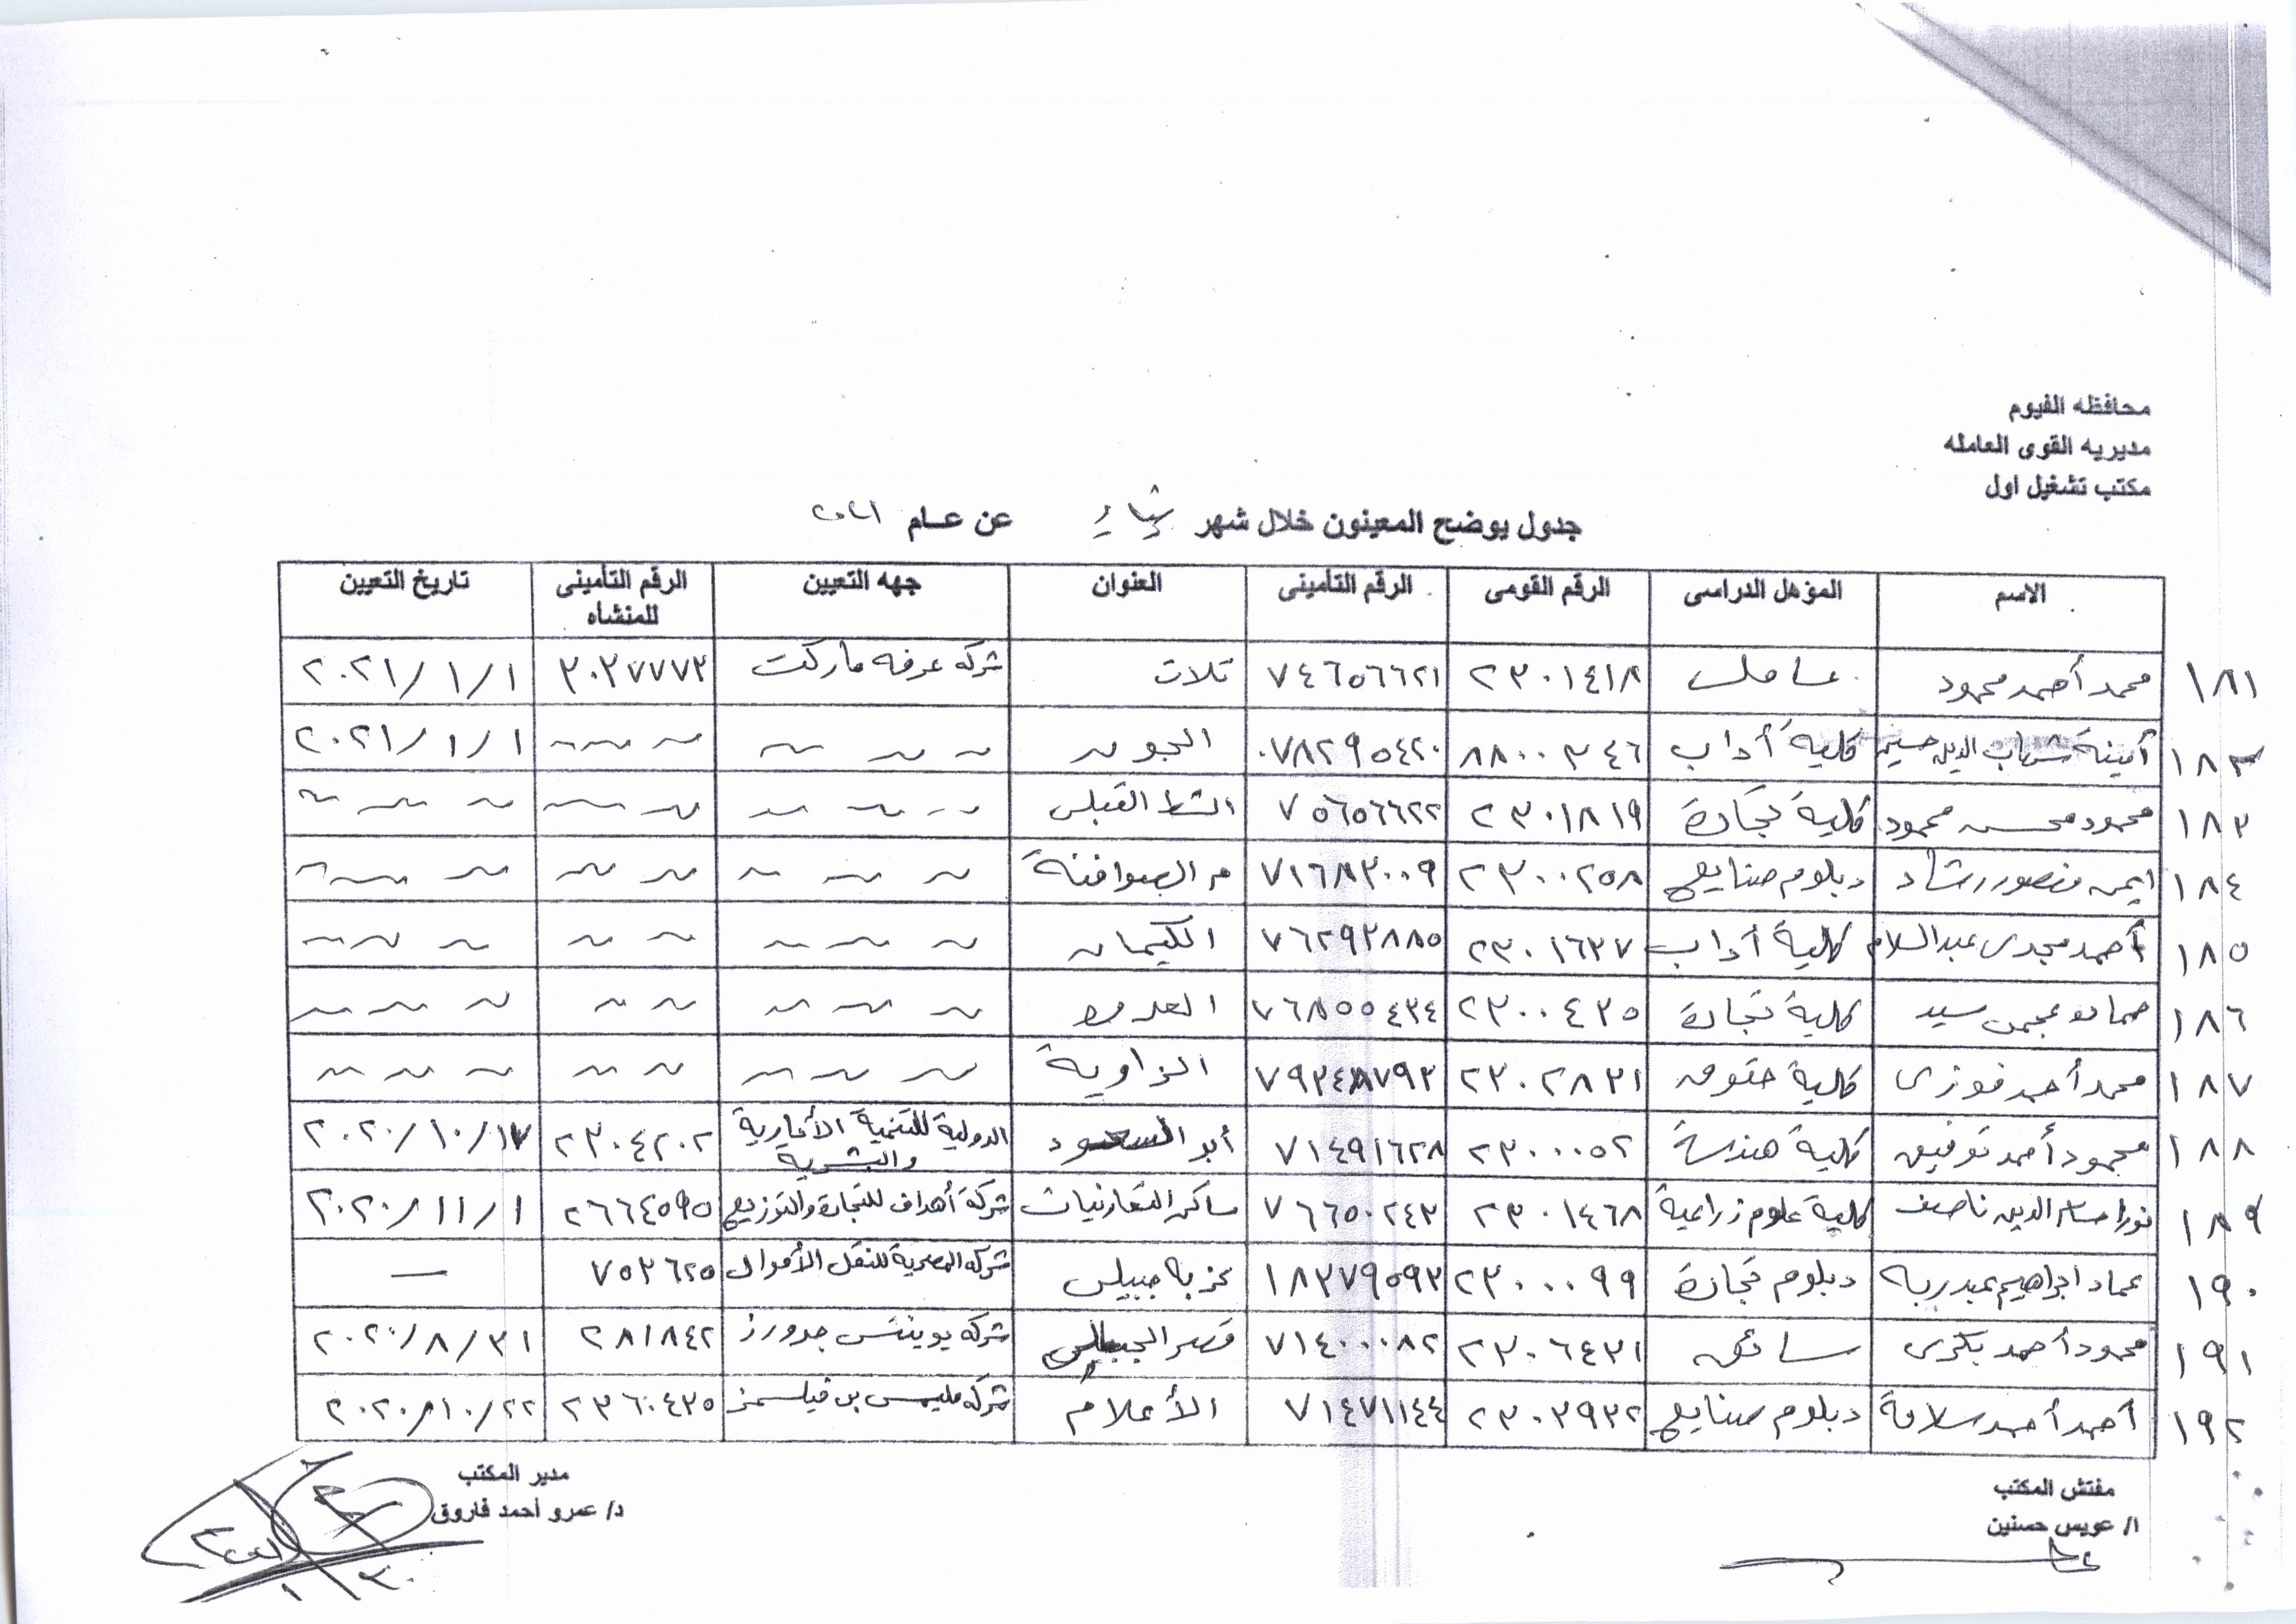 محافظه الفيوم
مديريه القوى العامله
مكتب تشغيل اول
جدول يوضح المعينون خلال شهر يناير عن عام ٢٠٢١
الاسم المؤهل الدراسى الرقم القومى الرقم التأمينى العنوان جهه التعيين الرقم التأمينى للمنشاه تاريخ التعيين
١٨١ محمد أحمد محمود عامل ٢٣٠١٤١٨ ٧٤٦٥٦٦٢١ تلات شركه عرفه ماركت ٣٠٣٧٧٧٣ ٢٠٢١/١/١
١٨٢ أمينة شهاب الدين كلية أداب ٨٨٠٠٣٤٦ ٠٧٨٢٩٥٤٢٠ ~ ~ ~ ~ ~ ٢٠٢١/١/١
١٨٣ محمود محسن محمود كلية تجارة ٢٣٠١٨١٩ ٧٥٦٥٦٦٢٢ الشط القبلى ~ ~ ~ ~ ~ ~ ~ ~
١٨٤ ايمن منصور رشاد دبلوم صنايع ٢٣٠٠٢٥٨ ٧١٦٨٣٠٠٩ م الصوافنة ~ ~ ~ ~ ~ ~ ~ ~
١٨٥ أحمد مجدى عبدالسلام كلية أداب ٢٣٠١٦٣٧ ٧٦٢٩٣٨٨٥ الكيمان ~ ~ ~ ~ ~ ~ ~ ~
١٨٦ سيد كلية تجارة ٢٣٠٠٤٣٥ ٧٦٨٥٥٤٣٤ ~ ~ ~ ~ ~ ~ ~ ~
١٨٧ محمد أحمد فوزى كلية حقوق ٢٣٠٢٨٣١ ٧٩٣٤٨٧٩٣ الزاوية ~ ~ ~ ~ ~ ~ ~ ~
١٨٨ محمود أحمد توفيق كلية هندسة ٢٣٠٠٠٥٢ ٧١٤٩١٦٢٨ أبو السعود الدولية للتنمية الأدارية والبشرية ٢٣٠٤٢٠٢ ٢٠٢٠/١٠/١٧
١٨٩ نورا حسام الدين ناصف كلية علوم زراعية ٢٣٠١٤٦٨ ٧٦٦٥٠٢٤٣ ساكن التعاونيات شركة أهداف للتجارة والتوزيع ٢٦٦٤٥٩٥ ٢٠٢٠/١١/١
١٩٠ عماد ابراهيم عبدربه دبلوم تجارة ٢٣٠٠٠٩٩ ١٨٣٧٩٥٩٣ عزبه جبيلى شركه المصرية للنقل الأموال ٧٥٣٦٢٥ —
١٩١ محمود أحمد بكرى سائق ٢٣٠٦٤٣١ ٧١٤٠٠٠٨٢ قصر الجبالى شركه جدورز ٢٨١٨٤٢ ٢٠٢٠/٨/٣١
١٩٢ أحمد أحمد سلامة دبلوم صنايع ٢٣٠٣٩٣٢ ٧١٤٧١١٤٤ الأعلام شركه ٢٣٦٠٤٣٥ ٢٠٢٠/١٠/٢٢
مفتش المكتب
ا/ عويس حسنين
مدير المكتب
د/ عمرو أحمد فاروق